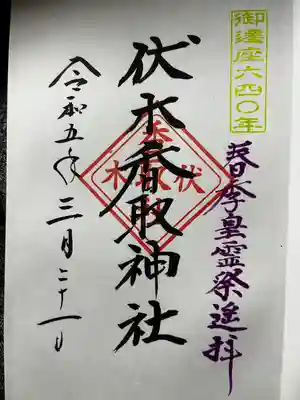 御遷座六四〇年
春季皇霊祭遥拝
伏木香取神社
令和五年三月二十一日